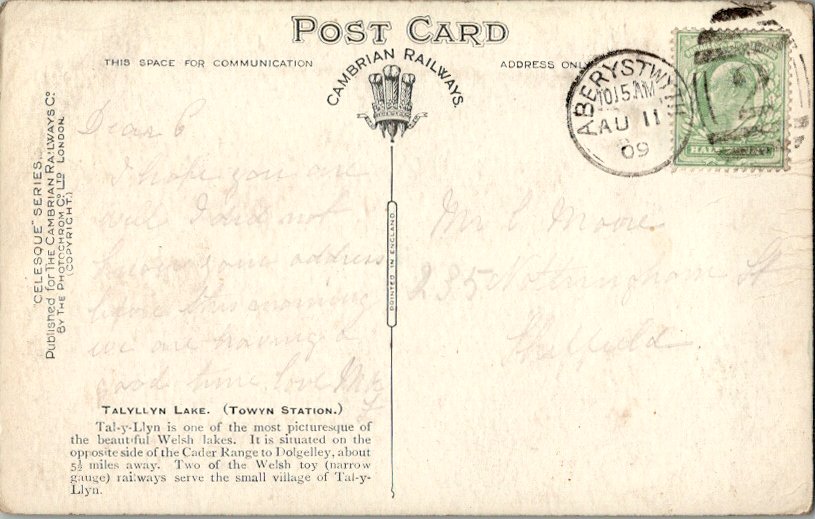 POST CARD
THIS SPACE FOR COMMUNICATION
ADDRESS ONLY
CAMBRIAN RAILWAYS.
ABERYSTWYTH
1015AM
AU 11
09
HALFPENNY
"CELESQUE" SERIES.
Published for THE CAMBRIAN RAILWAYS Co
BY THE PHOTOCHROM Co LTD LONDON.
(COPYRIGHT.)
Dear C
I hope you are
well I did not
know your address
before this morning
we are having a
good time, love
PRINTED IN ENGLAND
Mr C Moore
235 Nottingham St
Sheffield
TALYLLYN LAKE. (TOWYN STATION.)
Tal-y-Llyn is one of the most picturesque of
the beautiful Welsh lakes. It is situated on the
opposite side of the Cader Range to Dolgelley, about
5½ miles away. Two of the Welsh toy (narrow
gauge) railways serve the small village of Tal-y-
Llyn.